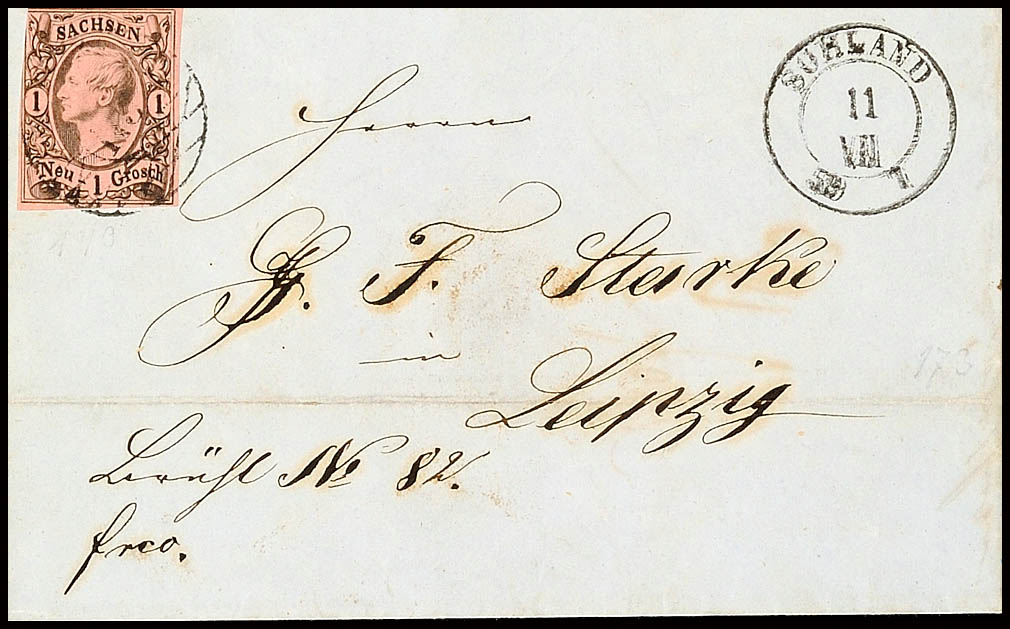 SACHSEN
1 1
Neu - 1 Grosch
SOHLAND
11
VIII
59 1
Herrn
F. Starke
in
Leipzig
173
Brühl No 82.
frco.